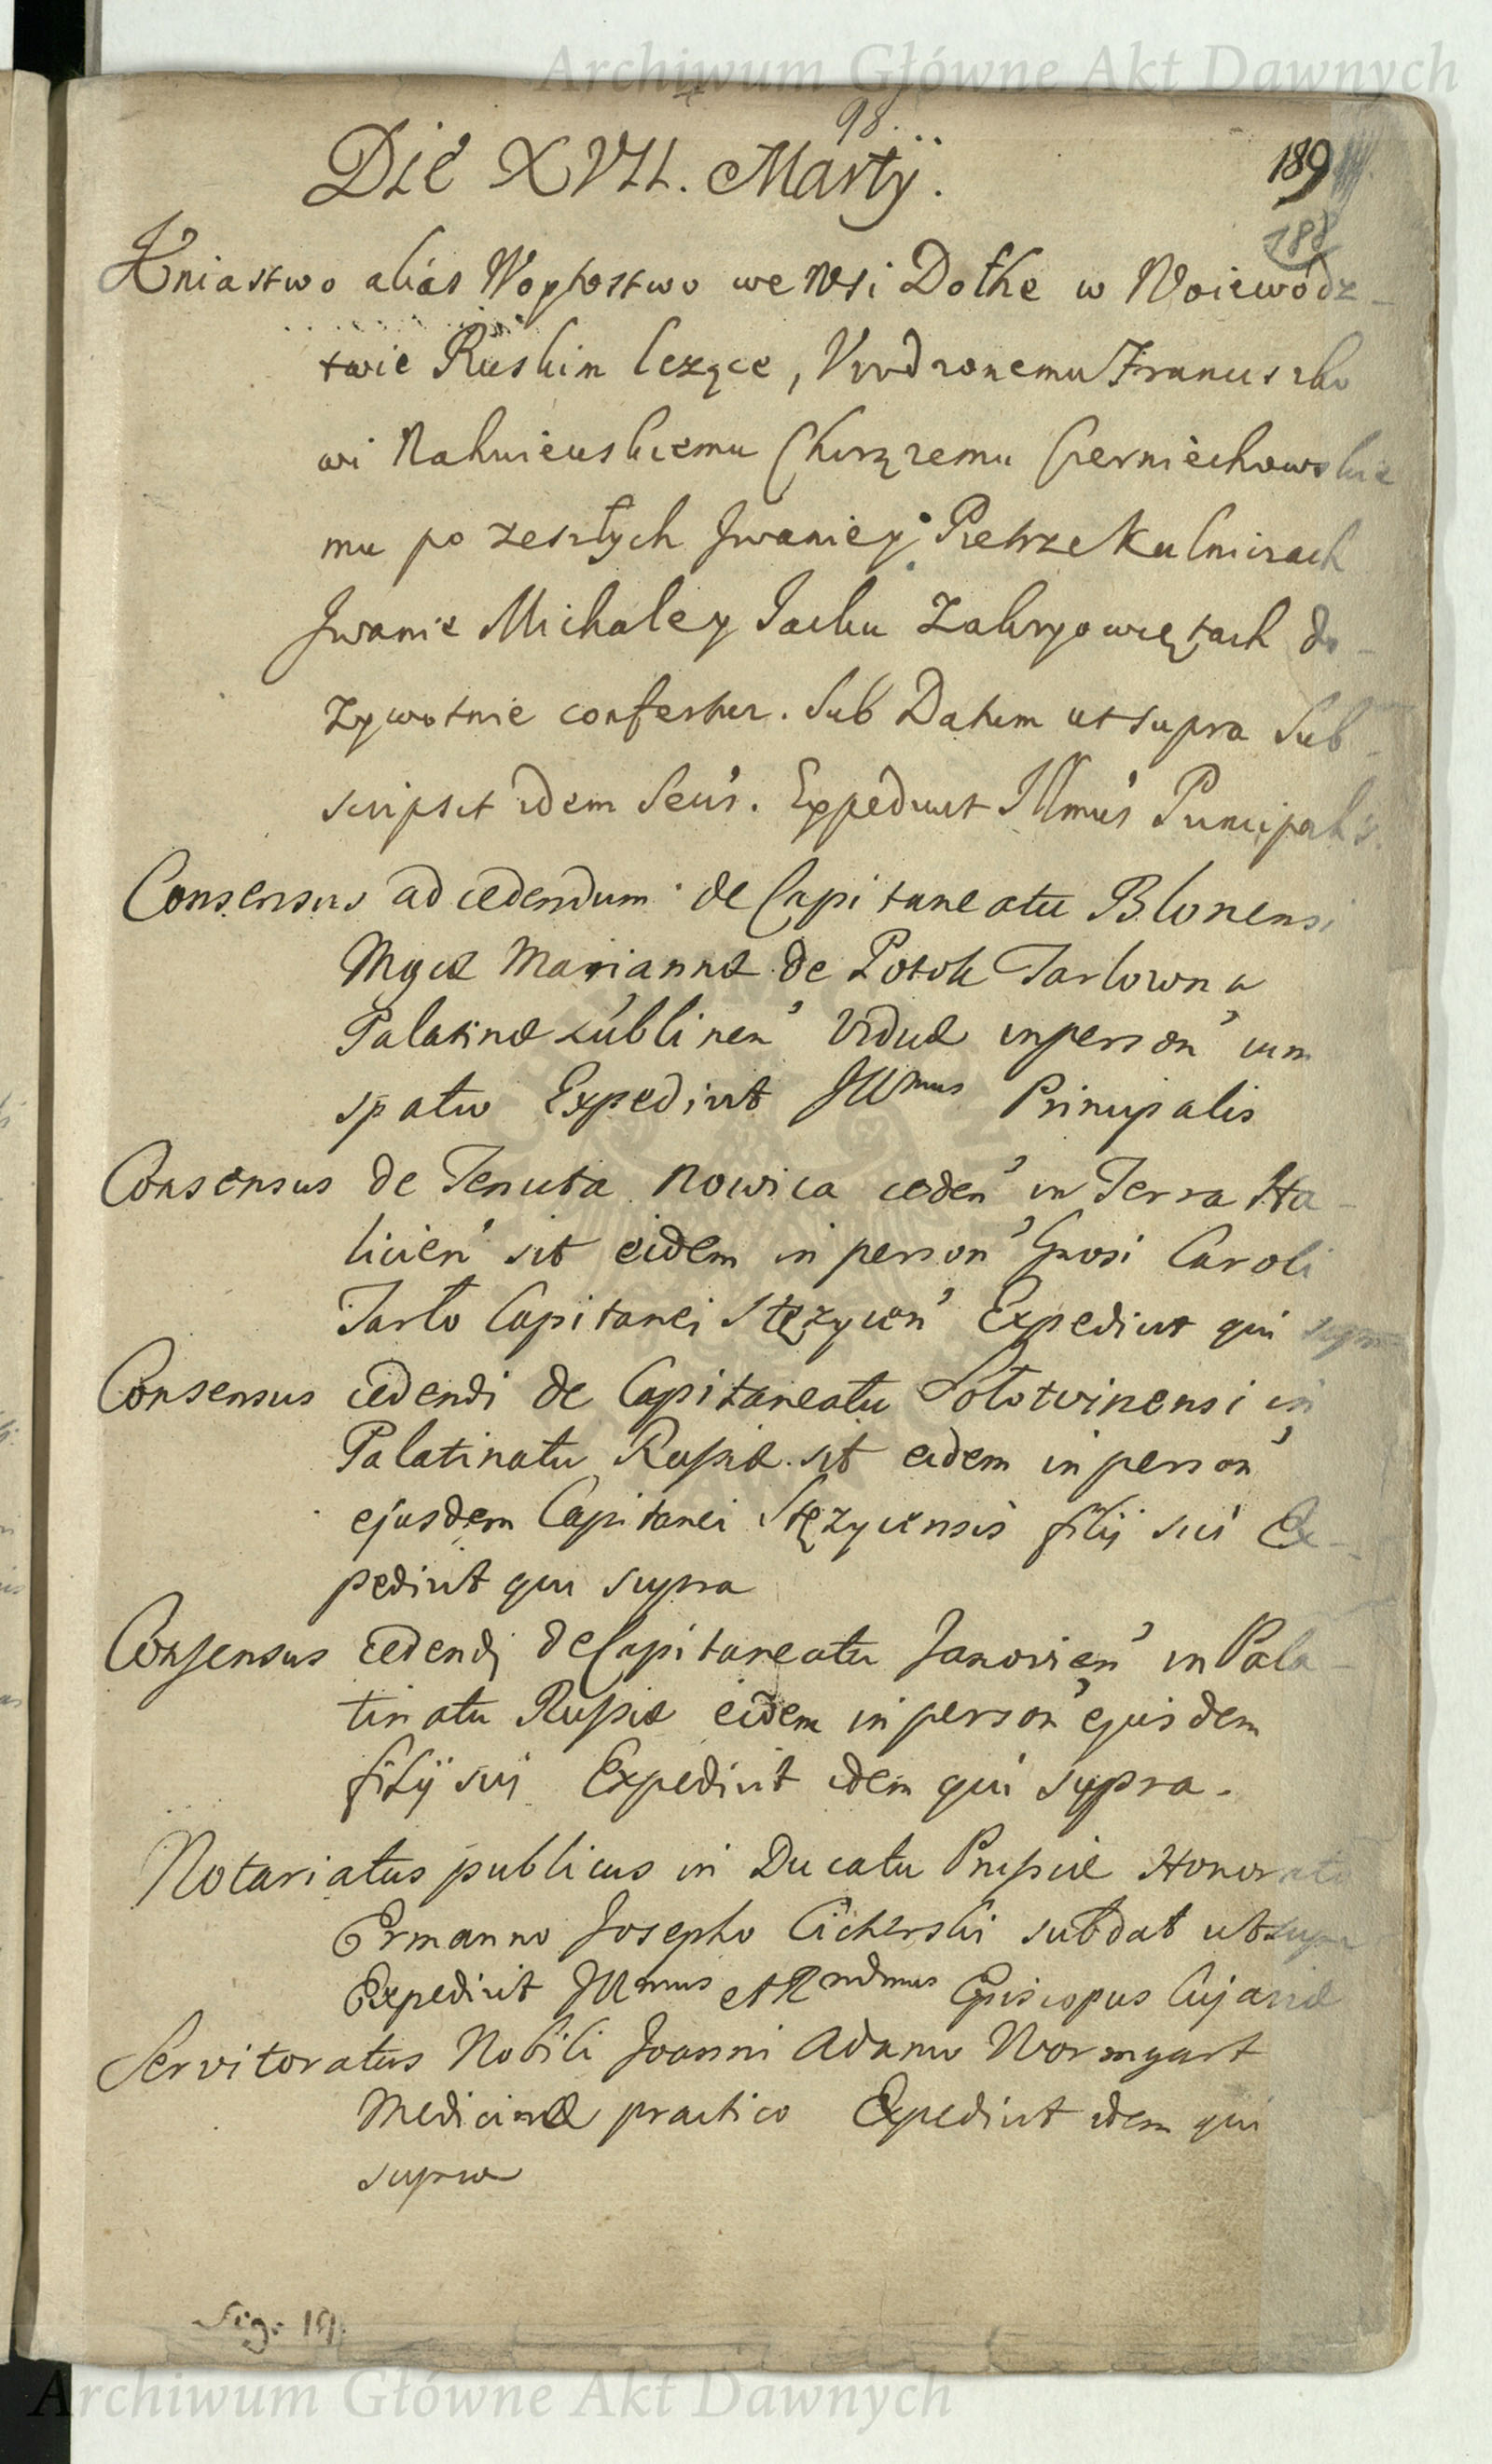 Archiwum Główne Akt Dawnych
98.
Die XVII. Martÿ.
189
188
Kniastwo aliás Woytostwo we Wsi Dołhe w Woiewodz-
twie Ruskim lezące, Vrodzonemu Franciszko
wi Chorązemu Czerniechowskie
mu po zeszłych Jwaniey Pietrze Kulnicach
Jwanie Michaley Jacku do-
zywotnie confertur. Sub Datum ut supra Sub-
scripsit idem Secr's. Expedivit Jllmus Principalis.
Consensus ad cedendum de Capitaneatu Blonensi
Mgcæ Mariannæ de Potok Tarlowna
Palatinæ Lublinen' Viduæ in person' cum
spatio Expedivit Jllmus Principalis
Consensus de Tenuta Nowica ceden' in Terra Ha-
licien' sit eidem in person' Gnosi Caroli
Tarło Capitanei Stęzycen' Expedivit qui supra
Consensus cedendi de Capitaneatu Sołotvinensi in
Palatinatu Russiæ sit eidem in person'
ejusdem Capitanei Stęzycensis filÿ sui Ex-
pedivit qui supra
Consensus cedendi de Capitaneatu Janovien' in Pala-
tinatu Russiæ eidem in person' ejusdem
filÿ sui Expedivit idem qui supra.
Notariatus publicus in Ducatu Prussiæ Honorato
Ermanno Josepho Cicherski sub dat ut supra
Expedivit Jllmus et Rndmus Episcopus Cujaviæ
Servitoratus Nobili Joanni Adamo Wormgart
Medicinæ practico Expedivit idem qui
supra
Sig. 19.
Archiwum Główne Akt Dawnych